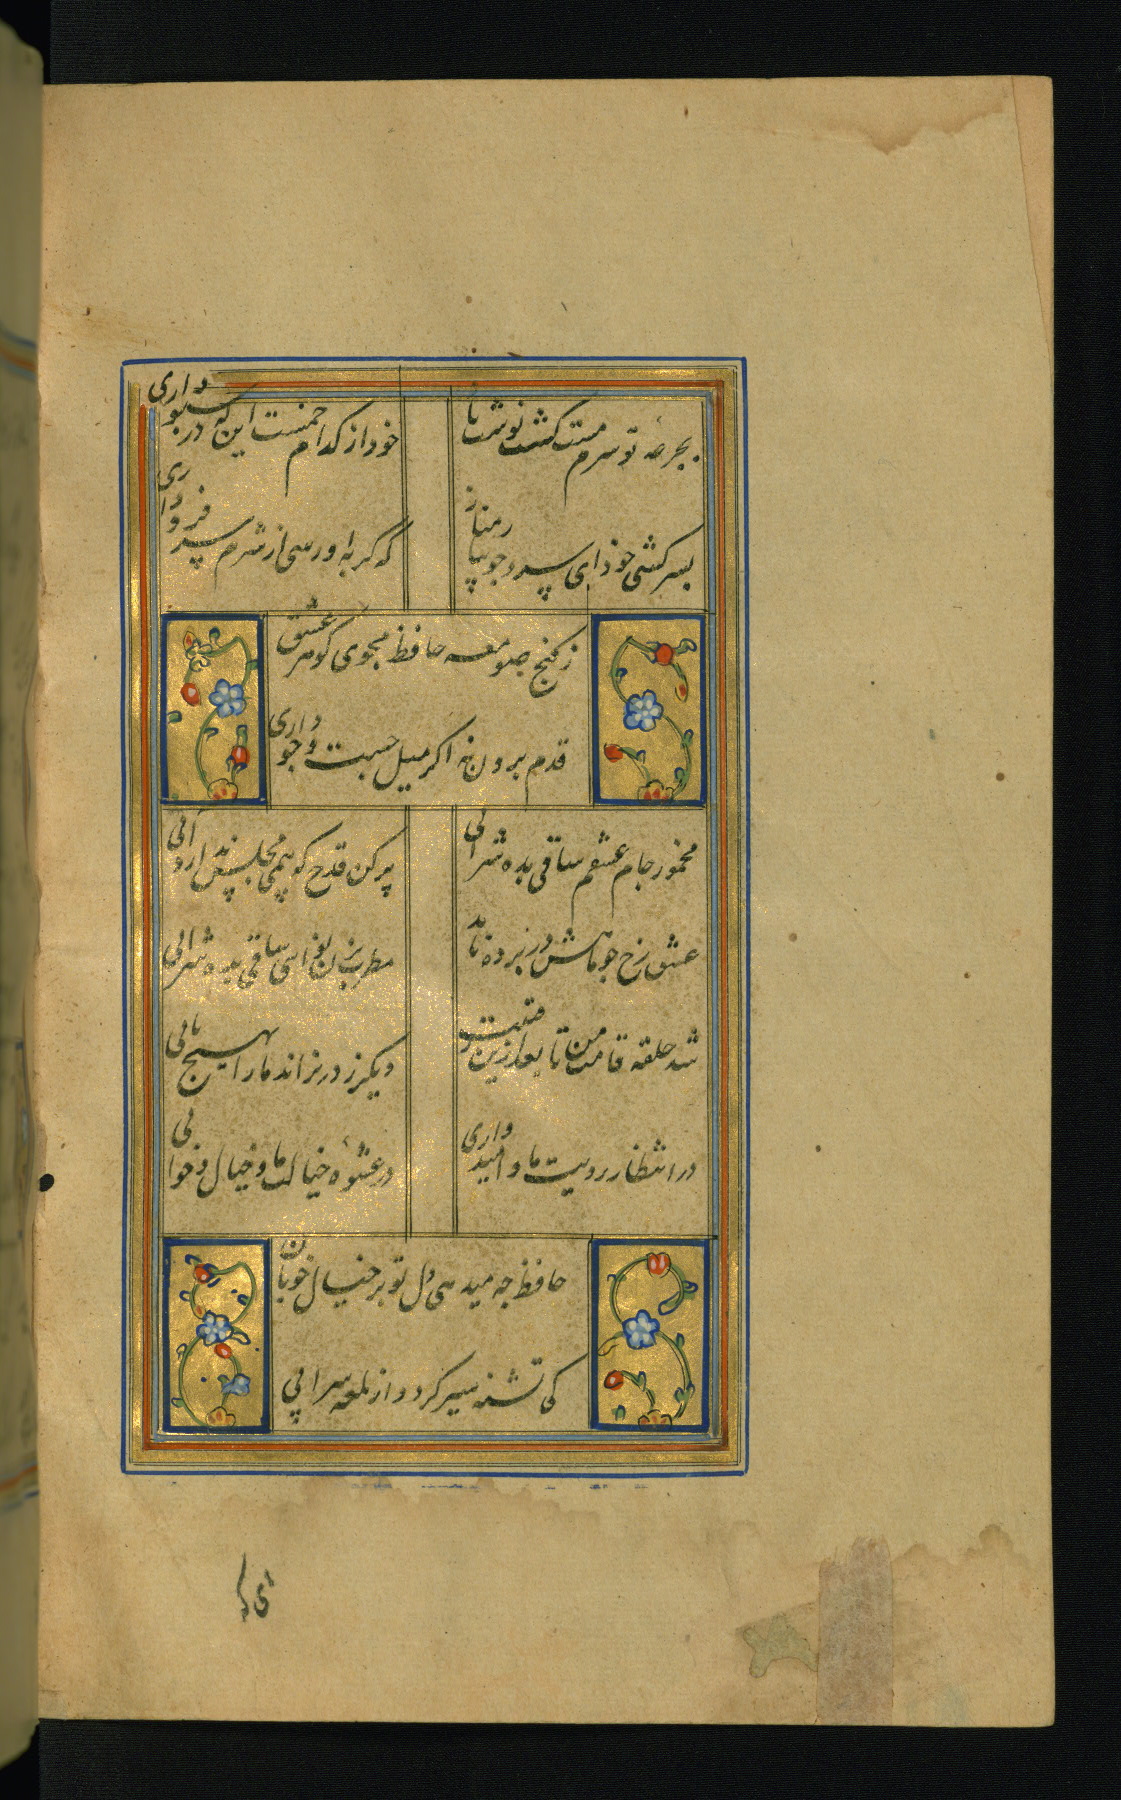 بجرعهٔ تو سرم مست کشت نوشت باد
خود از کدام خمست این که در سبو داری
بسرکشی خود ای سرو جویبار مناز
که کر باو رسی از شرم سر فرو داری
ز کنج صومعه حافظ مجوی کوهر عشق
قدم برون نه اکر میل جست و جو داری
مخمور جام عشقم ساقی بده شرابی
پر کن قدح که بی می مجلس ندارد آبی
عشق رخ چو ماهش در پرده
مطرب بزن نوائی ساقی بده شرابی
شد حلقه قامت من تا بعد ازین رقیبت
دیکر ز در نراند ما را بهیچ بابی
در انتظار رویت ما و امیدواری
در عشوهٔ خیالت ما و خیال و خوابی
حافظ چه می‌دهی دل تو بر خیال خوبان
کی تشنه سیر کردد از لمعه سرابی